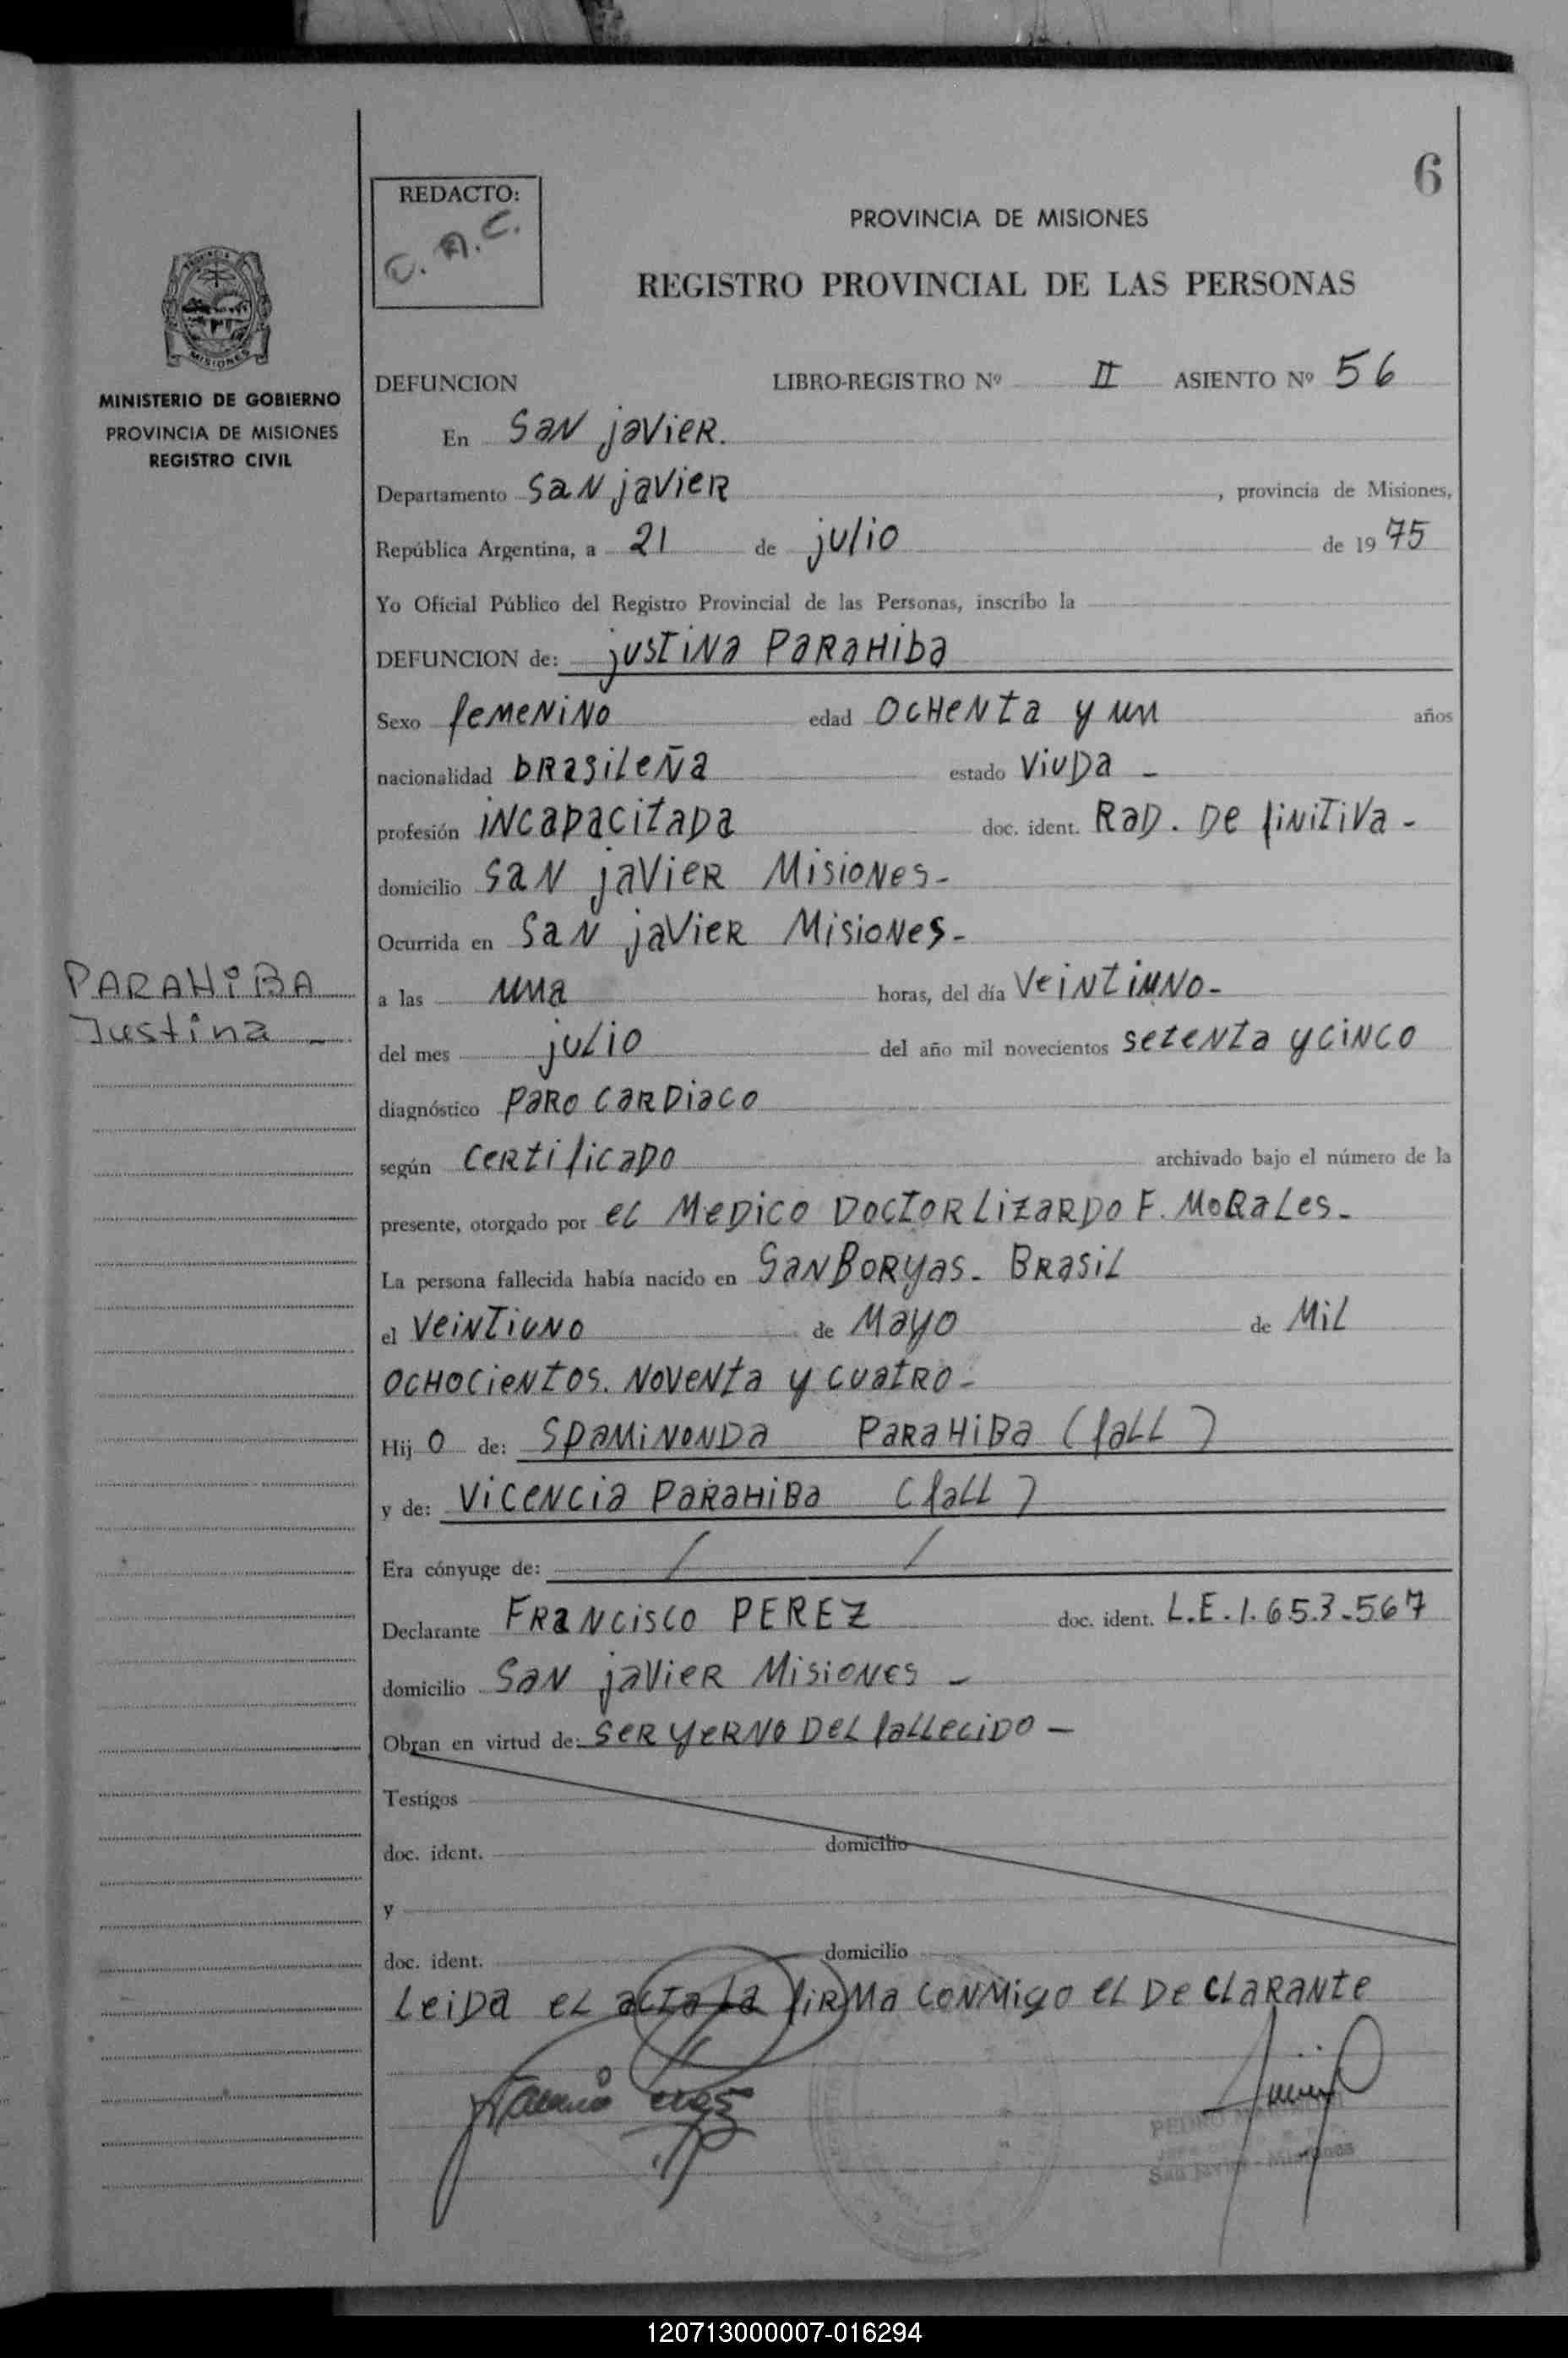 6
REDACTO:
C. A. C.
PROVINCIA DE MISIONES
REGISTRO PROVINCIAL DE LAS PERSONAS
MISIONES
MINISTERIO DE GOBIERNO
PROVINCIA DE MISIONES
REGISTRO CIVIL
DEFUNCION LIBRO-REGISTRO Nº II ASIENTO Nº 56
En San javier.
Departamento San javier, provincia de Misiones,
República Argentina, a 21 de julio de 1975
Yo Oficial Público del Registro Provincial de las Personas, inscribo la
DEFUNCION de: justina Parahiba
Sexo femenino edad ochenta y un años
nacionalidad brasileña estado viuda -
profesión incapacitada doc. ident. Rad. Definitiva -
domicilio San javier Misiones -
Ocurrida en San javier Misiones -
PARAHiBA
Justina -
a las una horas, del día veintiuno -
del mes julio del año mil novecientos setenta y cinco
diagnóstico paro cardiaco
según certificado archivado bajo el número de la
presente, otorgado por el Medico Doctor Lizardo F. Morales -
La persona fallecida había nacido en San Boryas - Brasil
el veintiuno de Mayo de Mil
ochocientos. noventa y cuatro -
Hijo de: Spaminonda Parahiba (fall)
y de: Vicencia Parahiba (fall)
Era cónyuge de: / /
Declarante Francisco PEREZ doc. ident. L.E. 1.653.567
domicilio San javier Misiones -
Obran en virtud de: ser yerno del fallecido -
Testigos
doc. ident. domicilio
y
doc. ident. domicilio
Leida el acta la firma conmigo el declarante
San Javier - Misiones
120713000007-016294